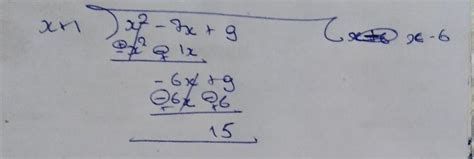 x+1 ) x² - 7x + 9 ( x - 6
x² 1x
-6x + 9
-6x 6
15